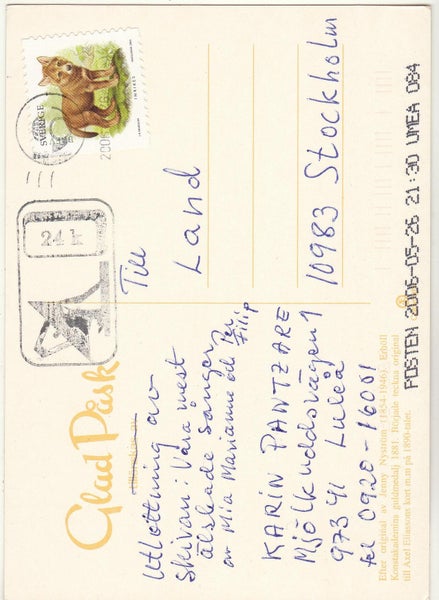 Glad Påsk
Utlottning av
skivan: Våra mest
älskade sånger
av Mia Marianne och Per
Filip
KARIN PANTZARE
Mjölkuddsvägen 1
973 41 Luleå
tel 0920-16051
Efter original av Jenny Nyström (1854-1946). Erhöll
Konstakademins guldmedalj 1881. Började teckna original
till Axel Eliassons kort m m på 1890-talet.
24 k
SVERIGE
Till
Land
10983 Stockholm
POSTEN 2006-05-26 21:30 UMEA 084